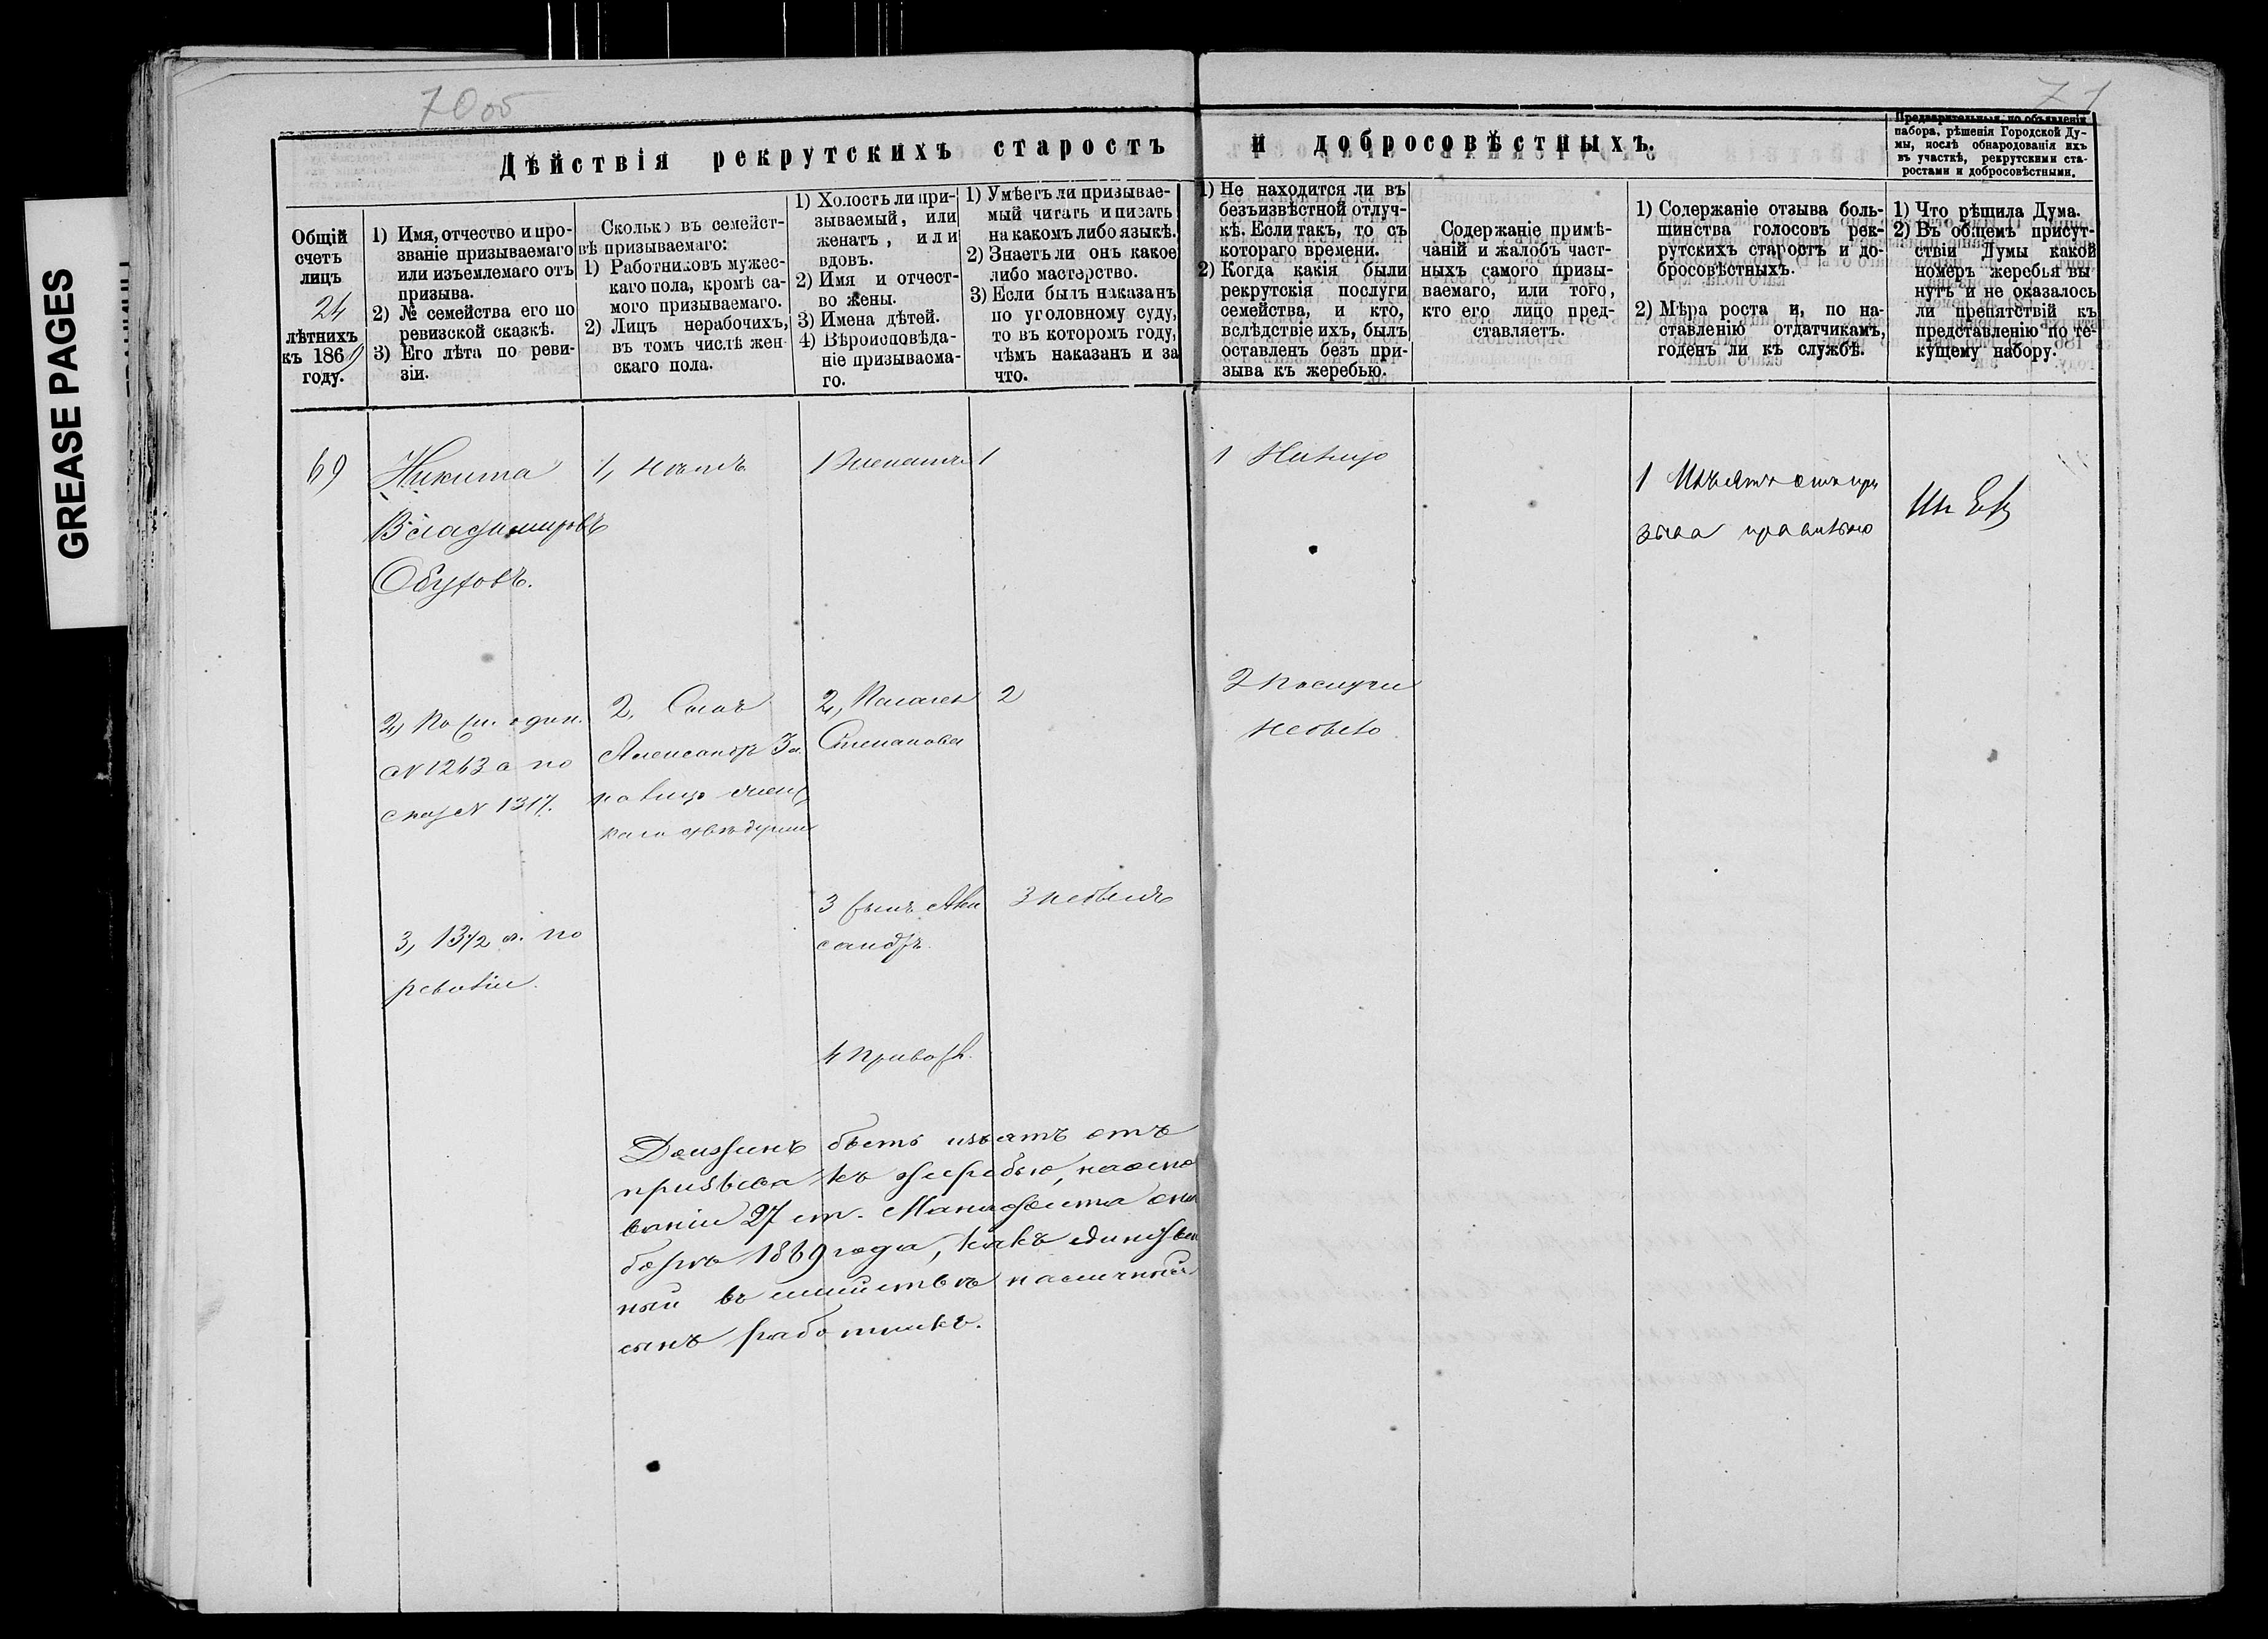 GREASE PAGES
70 об
71
Дѣйствія рекрутскихъ старостъ и добросовѣстныхъ.
Предварительныя, по объявленіи
набора, рѣшенія Городской Ду-
мы, послѣ обнародованія ихъ
въ участкѣ, рекрутскими ста-
ростами и добросовѣстными.
Общій
счетъ
лицъ
24
лѣтнихъ
къ 1869
году.
1) Имя, отчество и про-
званіе призываемаго
или изъемлемаго отъ
призыва.
2) № семейства его по
ревизской сказкѣ.
3) Его лѣта по реви-
зіи.
Сколько въ семейст-
вѣ призываемаго:
1) Работниковъ мужес-
каго пола, кромѣ са-
мого призываемаго.
2) Лицъ нерабочихъ,
въ томъ числѣ жен-
скаго пола.
1) Холостъ ли при-
зываемый, или
женатъ, или
вдовъ.
2) Имя и отчест-
во жены.
3) Имена дѣтей.
4) Вѣроисповѣда-
ніе призываема-
го.
1) Умѣетъ ли призывае-
мый читать и писать
на какомъ либо языкѣ.
2) Знаетъ ли онъ какое
либо мастерство.
3) Если былъ наказанъ
по уголовному суду,
то въ которомъ году,
чѣмъ наказанъ и за
что.
1) Не находится ли въ
безъизвѣстной отлуч-
кѣ. Если такъ, то съ
котораго времени.
2) Когда какія были
рекрутскія послуги
семейства, и кто,
вслѣдствіе ихъ, былъ
оставленъ безъ при-
зыва къ жеребью.
Содержаніе примѣ-
чаній и жалобъ част-
ныхъ самого призы-
ваемаго, или того,
кто его лицо пред-
ставляетъ.
1) Содержаніе отзыва боль-
шинства голосовъ рек-
рутскихъ старостъ и до-
бросовѣстныхъ.
2) Мѣра роста и, по на-
ставленію отдатчикамъ,
годенъ ли къ службѣ.
1) Что рѣшила Дума.
2) Въ общемъ присут-
ствіи Думы какой
номеръ жеребья вы
нутъ и не оказалось
ли препятствій къ
представленію по те-
кущему набору.
69
Никита
Владимировъ
Обуховъ.
2, По
№ 1263 а по
сказ № 1317.
3, 13½ л. по
ревизіи.
1, нѣтъ
2, Сынъ
Александръ
1 женатъ
2, Пелагея
Степанова
3 сынъ Алек
сандръ.
4 Правосл.
1
2
3 не былъ
1
2 послуги
не было
1 Изъятъ отъ при
зыва правильно
Долженъ быть изъятъ отъ
призыва къ жеребью, на осно
ваніи 27 ст. Манифеста
1869 года, какъ единствен
ный въ семействѣ наличный
сынъ работникъ.